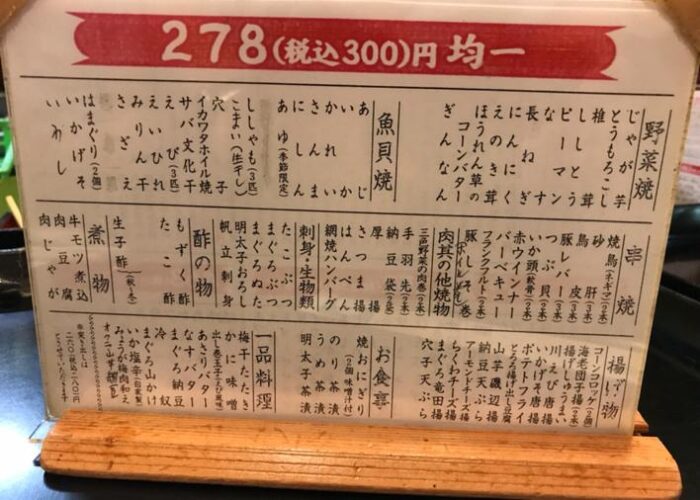 278(税込300)円 均一
野菜焼
じゃが芋
とうもろこし
椎茸
ししとう
ピーマン
なす
長ねぎ
にんにく
えのき茸
ほうれん草の
コーンバター
ぎんなん
魚貝焼
あじ
いか
かれい
さんま
にしん
あゆ(季節限定)
ししゃも(3匹)
こまい(生干し)
穴子
イカワタホイル焼
サバ文化干
えび(3匹)
えいひれ
みりん干
さざえ
はまぐり(2個)
いかげそ
いわし
串焼
焼鳥(ネギマ)(2本)
砂肝(3本)
鳥皮(2本)
豚レバー(2本)
つぶ貝(2本)
いか頭(軟骨)(2本)
赤ウインナー
バーベキュー
フランクフルト(2本)
豚しそ巻
肉其の他焼物
三色野菜の肉巻(2本)
手羽先(2本)
納豆袋(2本)
厚揚
さつま揚
はんぺん
網焼ハンバーグ
刺身・生物類
たこぶつ
まぐろぶつ
まぐろぬた
明太子おろし
帆立刺身
酢の物
もずく酢
たこ酢
生子酢(秋〜冬)
煮物
牛モツ煮込
肉豆腐
肉じゃが
揚げ物
コーンコロッケ(2個)
海老団子揚(2本)
揚げしゅうまい
川えび唐揚
いかげそ唐揚
ポテトフライ
とろろ揚げ出し豆腐
山芋磯辺揚
納豆天ぷら
アーモンドチーズ揚
ちくわチーズ揚
まぐろ竜田揚
穴子天ぷら
お食事
焼おにぎり
(2個味噌汁付)
のり茶漬
うめ茶漬
明太子茶漬
一品料理
梅干たたき
かに味噌
出し巻玉子
あさりバター
なすバター
まぐろ納豆
冷奴
まぐろ山かけ
いか塩辛(自家製)
みょうが梅肉和え